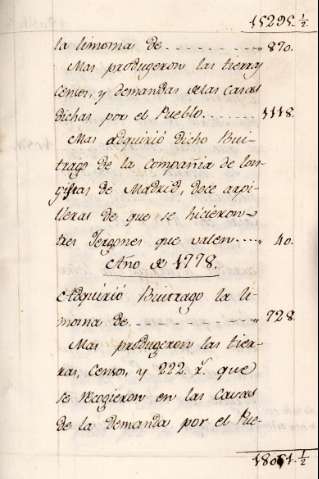 15295. ½
la limosna de . . . . . . . . . . 870.
Mas produgeron las tierras
censos, y demandas de las casas
dichas por el Pueblo . . . . . . 1118.
Mas adquirió dicho Bui-
trago de la Compañia de Lon-
gistas de Madrid, doce arpi-
lleras de que se hicieron
tres Jergones que valen . . . . 40.
Año de 1778.
Adquirió Buitrago la li-
mosna de . . . . . . . . . . 728
Mas produgeron las tier-
ras, censos, y 222 r.ˢ que
se recogieron en las casas
de la demanda por el Pue-
18051. ½